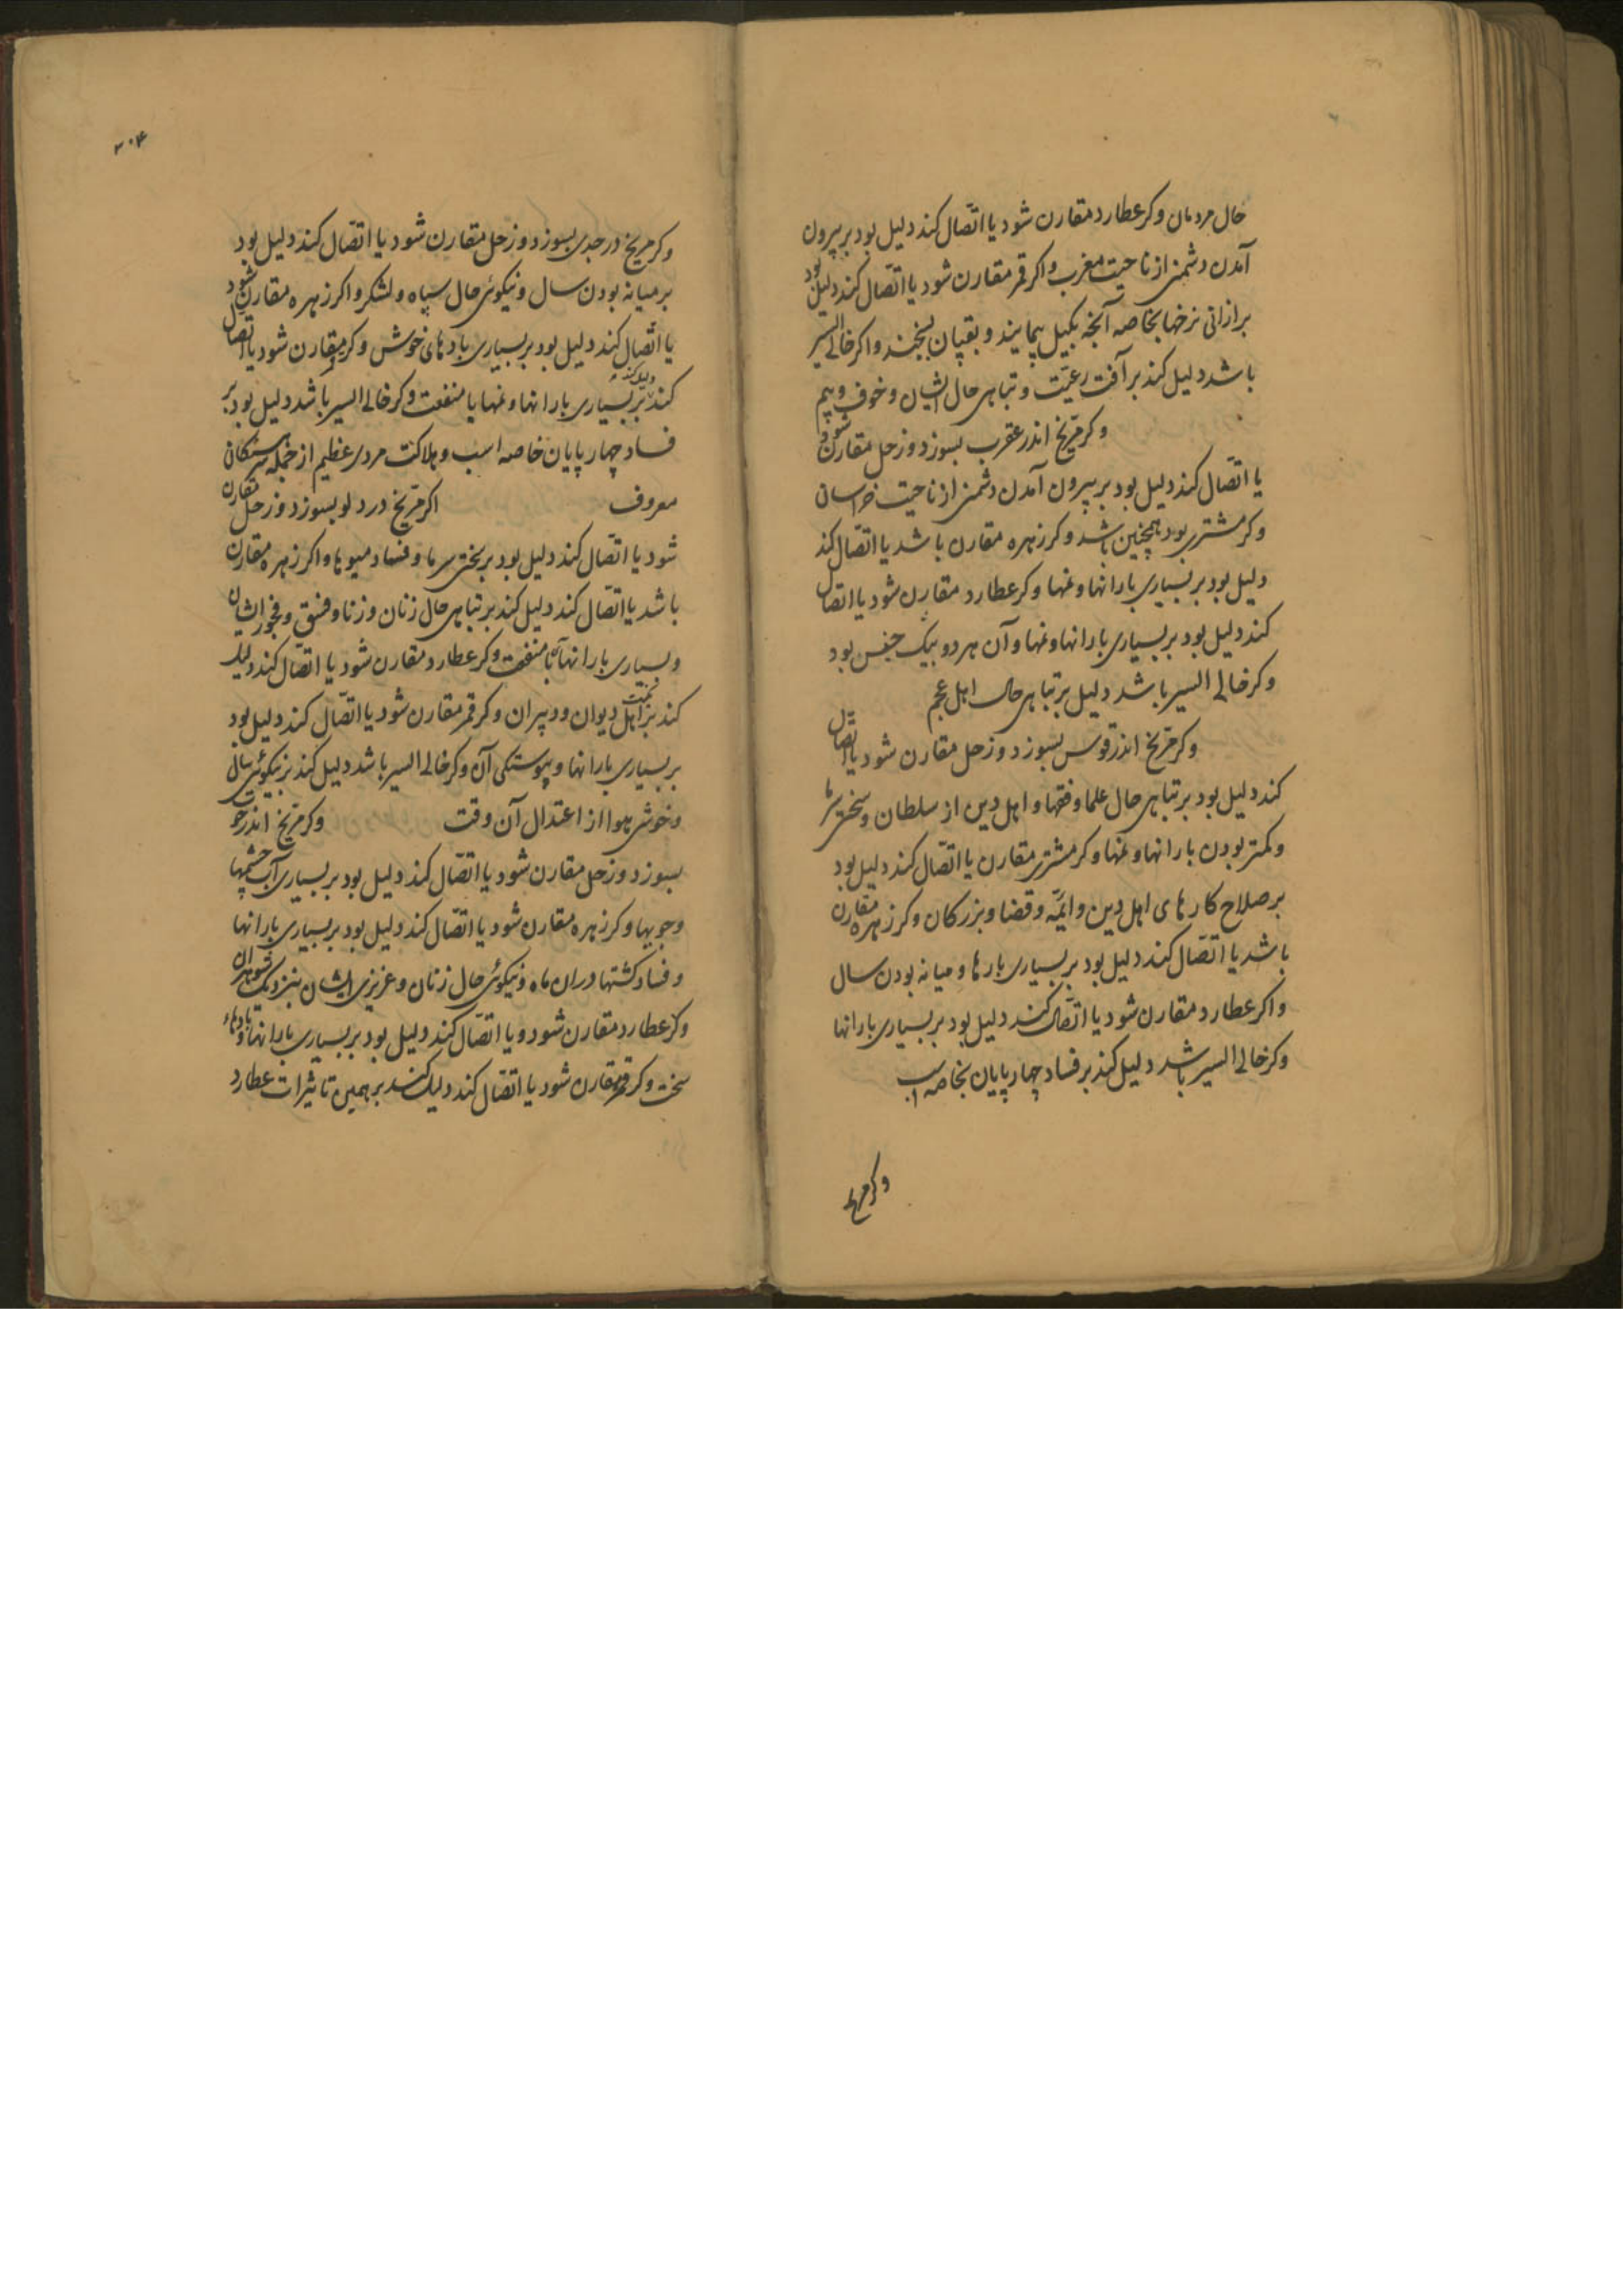 حال مردمان وکر عطارد مقارن شود یا اتّصال کند دلیل بود بر بیرون
آمدن دشمنی از ناحیت مغرب واکر قمر مقارن شود یا اتّصال کند دلیل بود
بر ارزانی نرخها بخاصه آنچه بکیل پیمایند و بقپان بسنجند واکر خالی السیر
باشد دلیل کند بر آفت رعیّت و تباهی حال ایشان و خوف و بیم
وکر مرّیخ اندر عقرب بسوزد و زحل مقارن شود
یا اتّصال کند دلیل بود بر بیرون آمدن دشمنی از ناحیت خراسان
وکر مشتری بود همچنین باشد وکر زهره مقارن باشد یا اتّصال کند
دلیل بود بر بسیاری بارانها و نمها وکر عطارد مقارن شود یا اتصال
کند دلیل بود بر بسیاری بارانها و نمها و آن هر دو بیک جنس بود
وکر خالی السیر باشد دلیل بر تباهی حال اهل عجم
وکر مرّیخ اندر قوس بسوزد و زحل مقارن شود یا اتّصال
کند دلیل بود بر تباهی حال علما و فقها و اهل دین از سلطان و سختی سرما
و کمتر بودن بارانها و نمها وکر مشتری مقارن یا اتّصال کند دلیل بود
بر صلاح کارهای اهل دین و ایمّه و قضا و بزرکان وکر زهره مقارن
باشد یا اتّصال کند دلیل بود بر بسیاری بارها و میانه بودن سال
واکر عطارد مقارن شود یا اتّصال کند دلیل بود بر بسیاری بارانها
وکر خالی السیر باشد دلیل کند بر فساد چهارپایان بخاصه اسب
وکر مریخ
۳۰۴
وکر مریخ در جدی بسوزد و زحل مقارن شود یا اتّصال کند دلیل بود
بر میانه بودن سال و نیکوئی حال سپاه و لشکر واکر زهره مقارن شود
یا اتّصال کند دلیل بود بر بسیاری بادهای خوش وکر مقارن شود یا اتصال
کند بر بسیاری بارانها و نمها با منفعت وکر خالی السیر باشد دلیل بود بر
فساد چهارپایان خاصه اسب و هلاکت مردی عظیم از جمله
معروف اکر مرّیخ در دلو بسوزد و زحل مقارن
شود یا اتّصال کند دلیل بود بر سختی سرما و فساد میوها واکر زهره مقارن
باشد یا اتّصال کند دلیل کند بر تباهی حال زنان و زنا و فسق و فجور ایشان
و بسیاری بارانها با منفعت وکر عطارد مقارن شود یا اتّصال کند دلیل
کند بر اهل دیوان و دبیران وکر قمر مقارن شود یا اتّصال کند دلیل بود
بر بسیاری بارانها و پیوستکی آن وکر خالی السیر باشد دلیل کند بر نیکوئی سال
و خوشی هوا از اعتدال آن وقت وکر مرّیخ اندر حوت
بسوزد و زحل مقارن شود یا اتّصال کند دلیل بود بر بسیاری آب چشمها
و جویها وکر زهره مقارن شود یا اتّصال کند دلیل بود بر بسیاری بارانها
و فساد کشتها در ان ماه و نیکوئی حال زنان و عزیزی ایشان بنزدیک شوهران
وکر عطارد مقارن شود و یا اتّصال کند دلیل بود بر بسیاری بارانها و بادهاء
سخت وکر قمر مقارن شود یا اتّصال کند دلیل کند بر همین تاثیرات عطارد